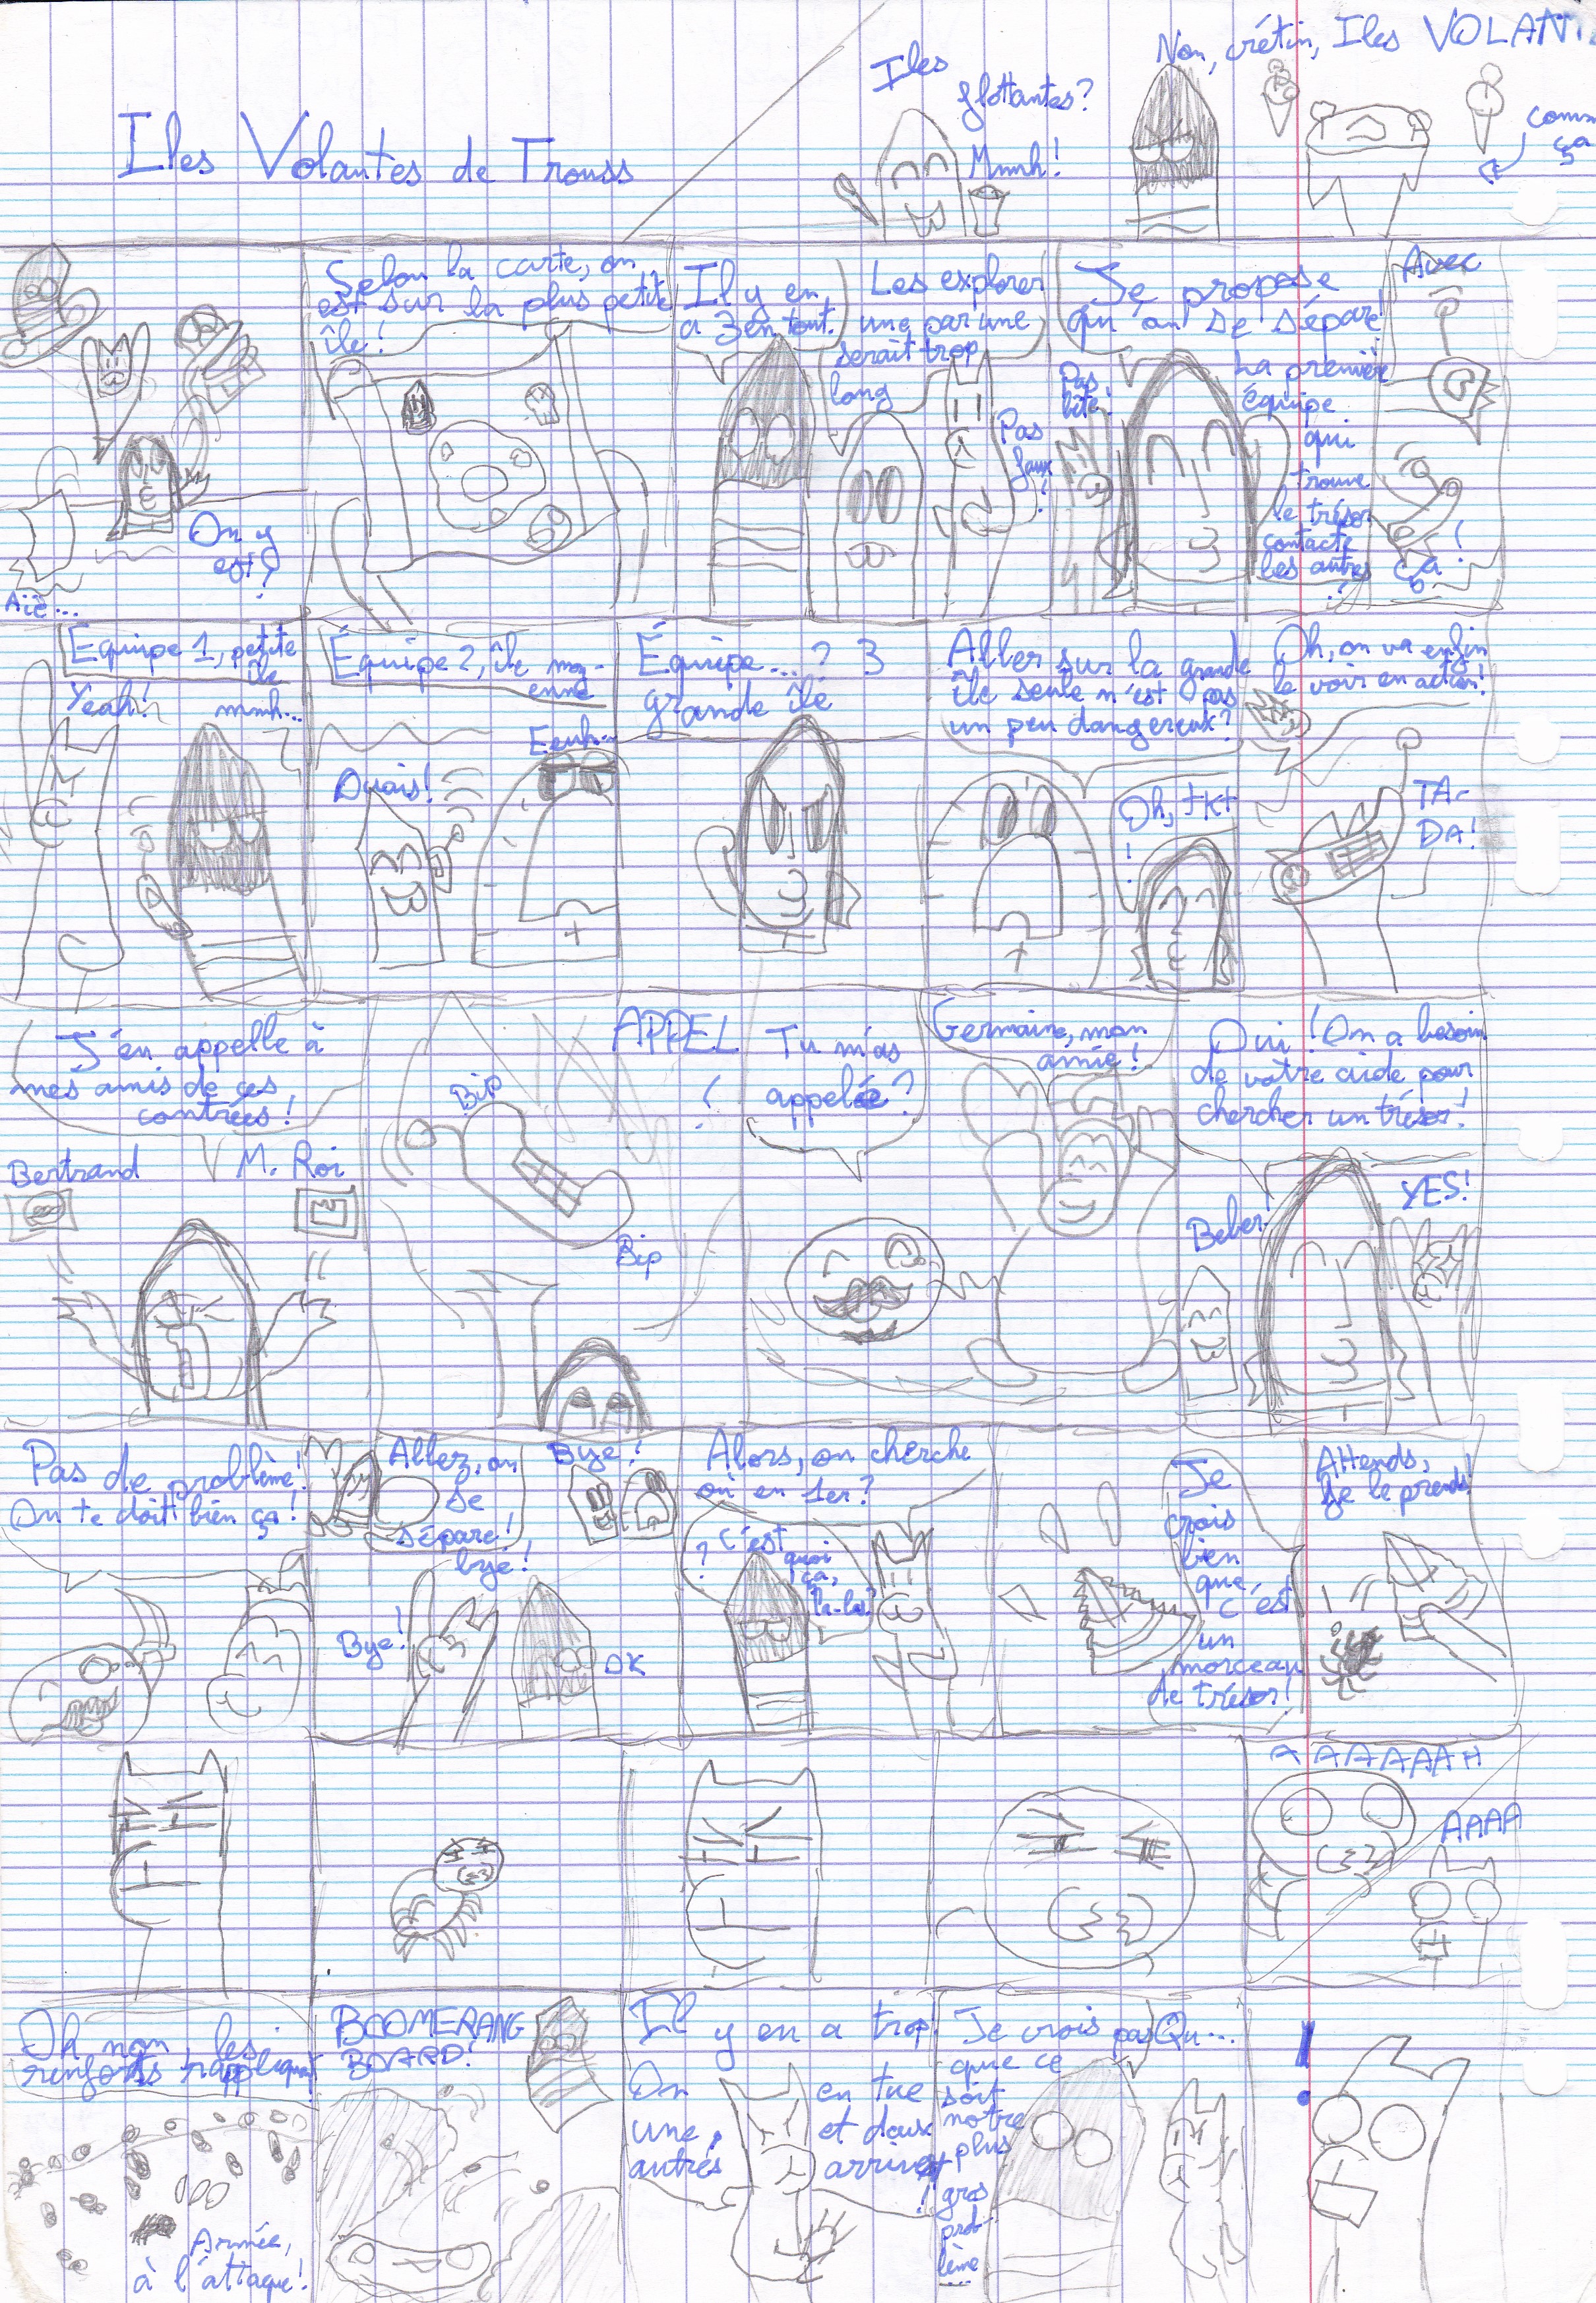 Iles Volantes de Trouss
Iles
flottantes?
Mmh!
Non, crétin, Iles VOLANT
comm
ça
On y
est?
Aïe...
Selon la carte, on
est sur la plus petite
île!
Il y en
a 3 en tout.
Les explorer
une par une
serait trop
long
Pas
faux
!
Je propose
qu'on se sépare!
Pas
bête!
La première
équipe
qui
trouve
le trésor
contacte
les autres
Avec
ça!
Équipe 1, petite
île
Yeah!
mmh...
Équipe 2, île moy-
enne
Ouais!
Eeuh...
Équipe...? 3
grande île
Aller sur la grande
île seule n'est pas
un peu dangereux?
Oh, tkt
!
Oh, on va enfin
le voir en action!
TA-
DA!
J'en appelle à
mes amis de ces
contrées!
Bertrand
M. Roi
APPEL
Bip
Bip
Tu m'as
appelée?
Germaine, mon
amie!
Oui! On a besoin
de votre aide pour
chercher un trésor!
Beber!
YES!
Pas de problème!
On te doit bien ça!
Allez, on
se
sépare!
bye!
Bye!
Bye!
OK
Alors, on cherche
où en 1er?
?
C'est
quoi
ça,
là-bas?
Je
crois
bien
que
c'est
un
morceau
de trésor!
Attends,
je le prends!
AAAAAAH
AAAA
Oh non, les
renforts rappliquent
!
Armée,
à l'attaque!
BOOMERANG
BOARD!
Il y en a trop
On en tue
une, et deux
autres arrivent
!
Je crois pas
que ce
soit
notre
plus
gros
prob-
lème
...
Qu...
!